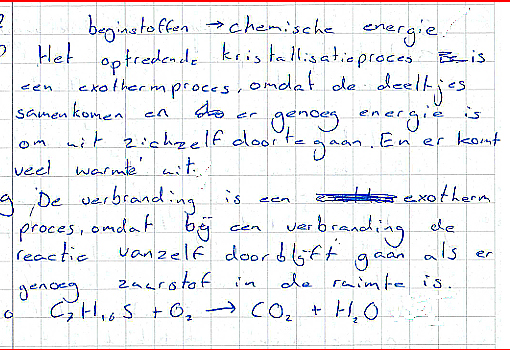 beginstoffen → chemische energie.
Het optredende kristallisatieproces is
een exothermproces, omdat de deeltjes
samenkomen en er genoeg energie is
om uit zichzelf door te gaan. En er komt
veel warmte uit.
g De verbranding is een exotherm
proces, omdat bij een verbranding de
reactie vanzelf door blijft gaan als er
genoeg zuurstof in de ruimte is.
C₇H₁₆S + O₂ → CO₂ + H₂O